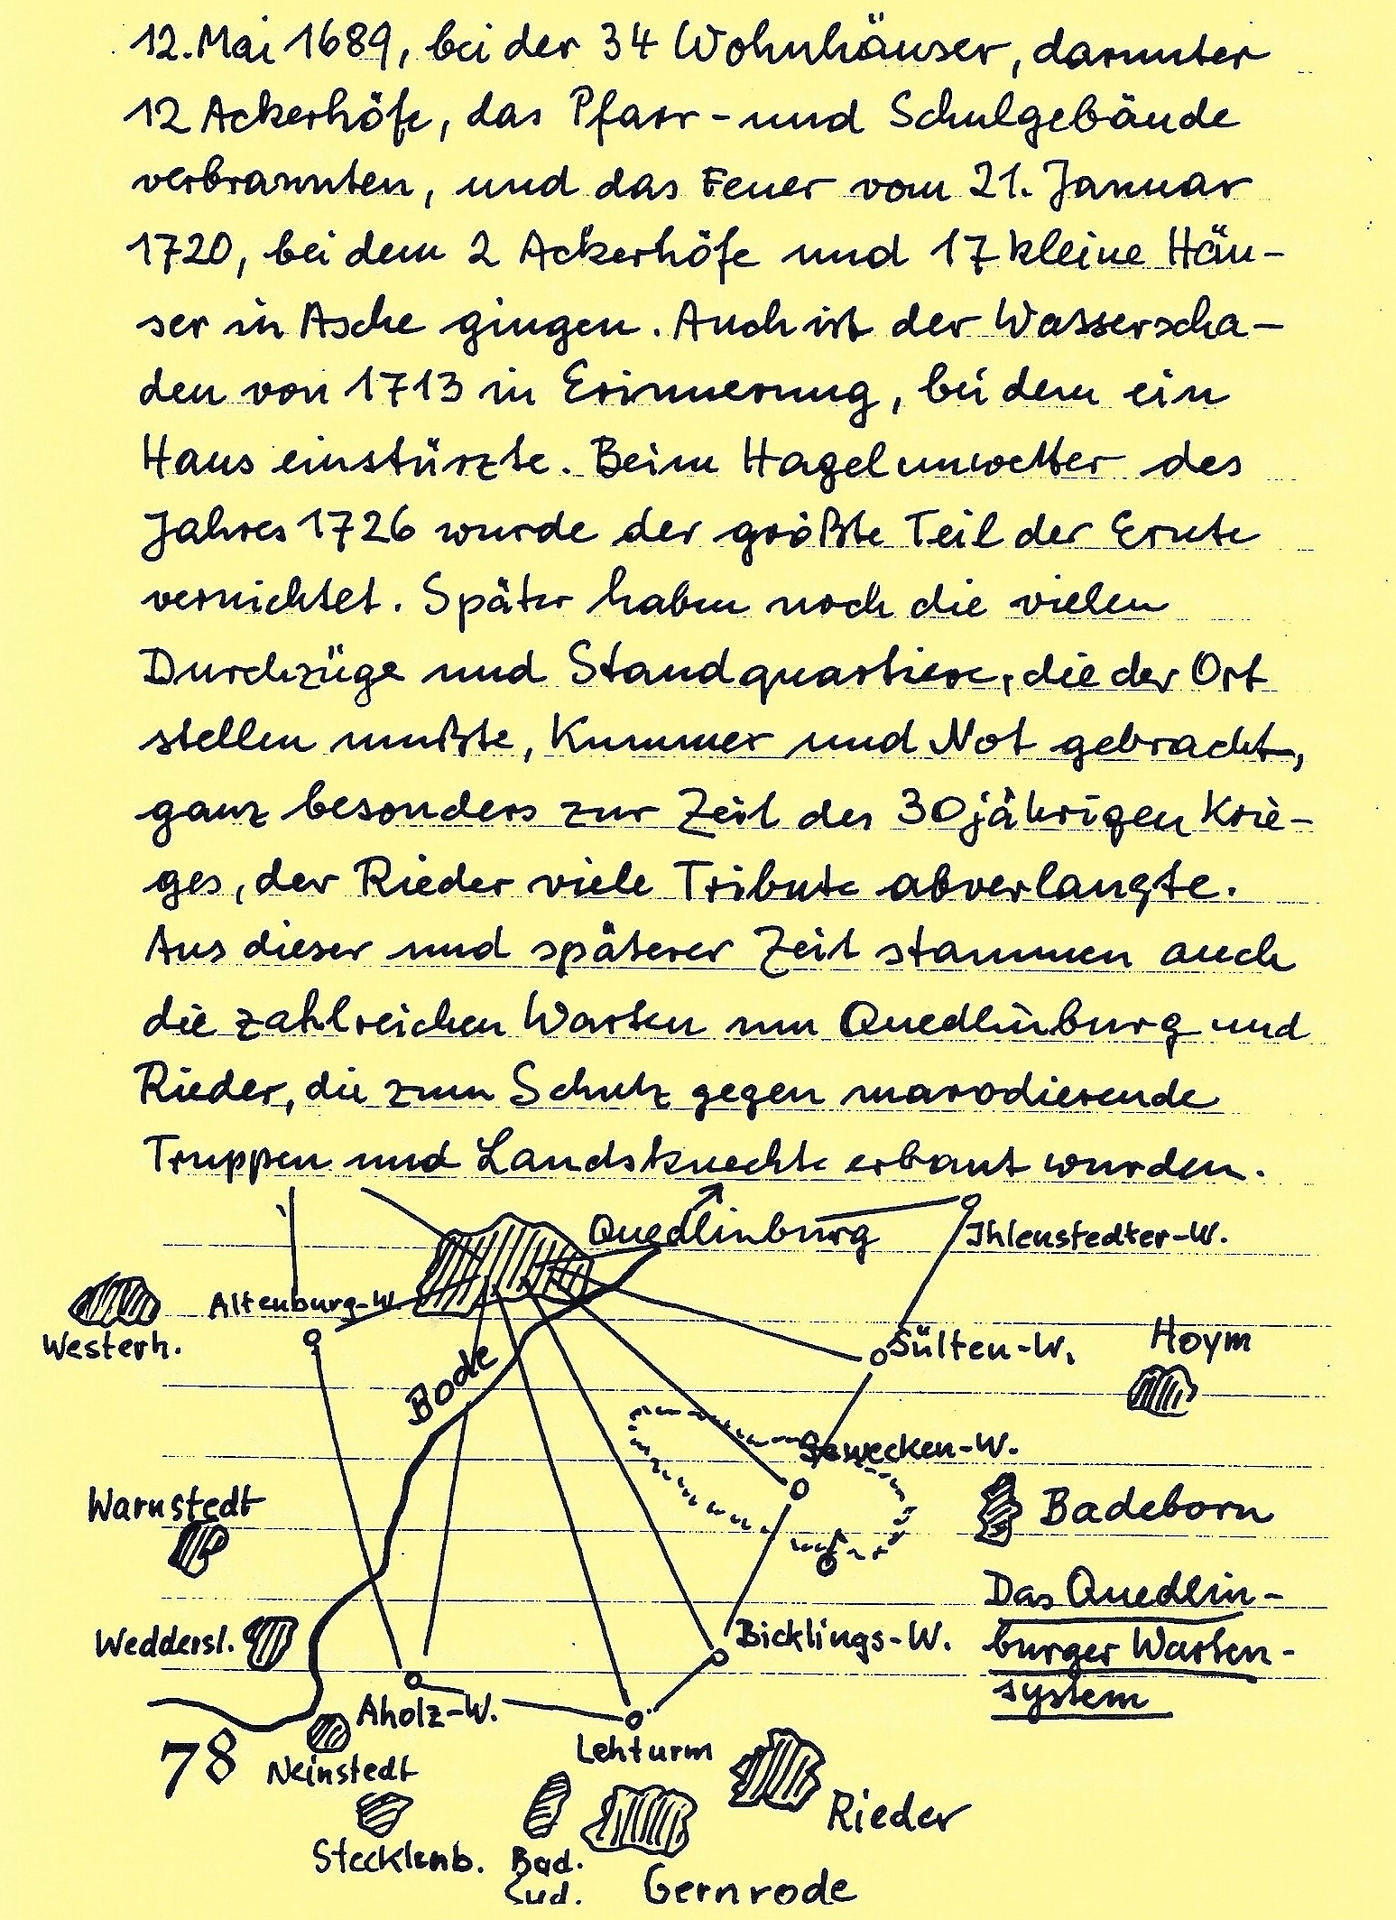 12. Mai 1689, bei der 34 Wohnhäuser, darunter
12 Ackerhöfe, das Pfarr- und Schulgebäude
verbrannten, und das Feuer vom 21. Januar
1720, bei dem 2 Ackerhöfe und 17 kleine Häu-
ser in Asche gingen. Auch ist der Wasserscha-
den von 1713 in Erinnerung, bei dem ein
Haus einstürzte. Beim Hagelunwetter des
Jahres 1726 wurde der größte Teil der Ernte
vernichtet. Später haben noch die vielen
Durchzüge und Standquartiere, die der Ort
stellen mußte, Kummer und Not gebracht,
ganz besonders zur Zeit des 30jährigen Krie-
ges, der Rieder viele Tribute abverlangte.
Aus dieser und späterer Zeit stammen auch
die zahlreichen Warten um Quedlinburg und
Rieder, die zum Schutz gegen marodierende
Truppen und Landsknechte erbaut wurden.
Quedlinburg
Ihlenstedter-W.
Altenburg-W.
Westerh.
Sülten-W.
Hoym
Bode
Sewecken-W.
Warnstedt
Badeborn
Das Quedlin-
burger Warten-
system
Weddersl.
Bicklings-W.
Aholz-W.
78
Neinstedt
Lehturm
Rieder
Stecklenb.
Bad.
Sud.
Gernrode